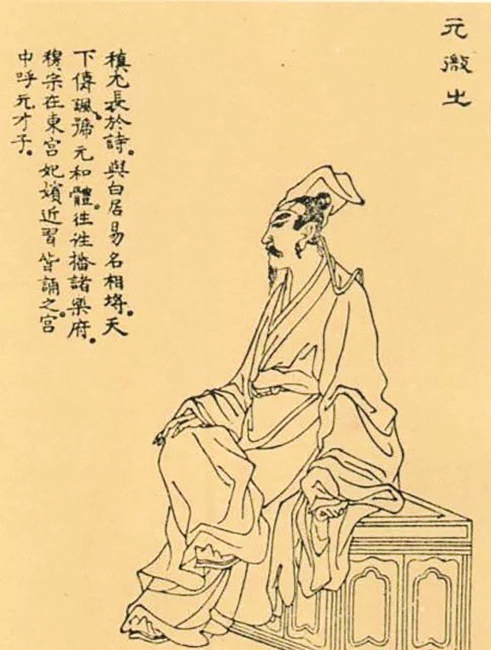 元微之
稹尤長於詩。與白居易名相埒。天
下傳諷。號元和體。往往播諸樂府。
穆宗在東宮妃嬪近習皆誦之。宮
中呼元才子。